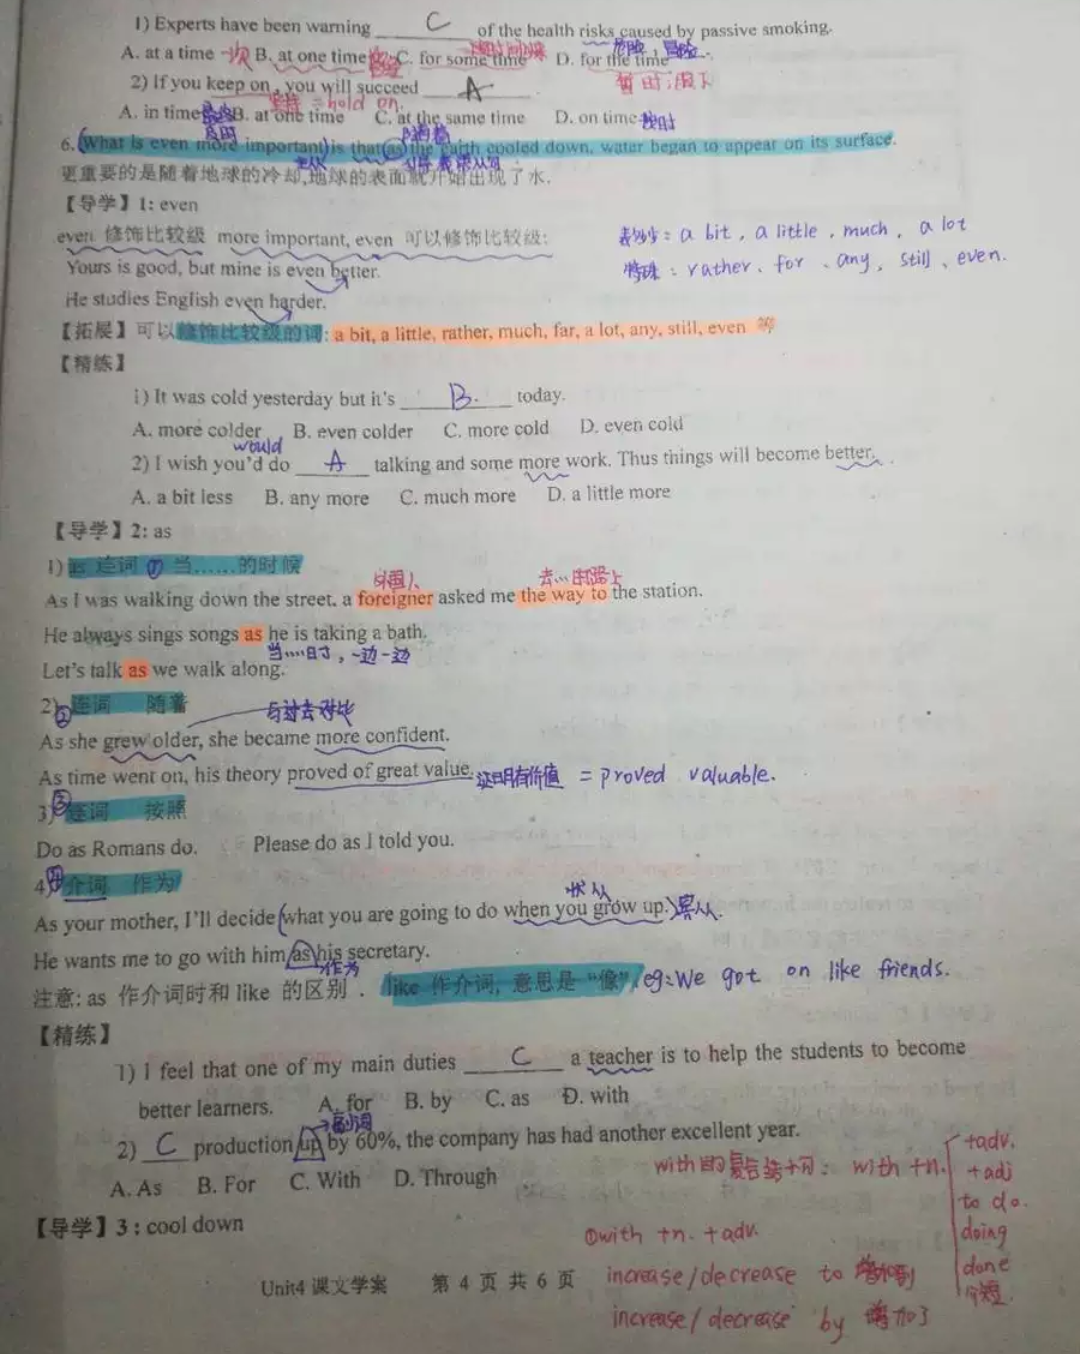 1) Experts have been warning C of the health risks caused by passive smoking.
危险，冒险
A. at a time 一次 B. at one time C. for some time D. for the time
2) If you keep on, you will succeed A
坚持 = hold on.
A. in time B. at one time C. at the same time D. on time 按时
及时
6. (What is even more important) is that as the earth cooled down, water began to appear on its surface.
主从 引导表语从句
更重要的是随着地球的冷却,地球的表面就开始出现了水.
【导学】1: even
even 修饰比较级 more important, even 可以修饰比较级:
a bit, a little, much, a lot
Yours is good, but mine is even better.
特殊: rather、for、any, still、even.
He studies English even harder.
【拓展】可以修饰比较级的词: a bit, a little, rather, much, far, a lot, any, still, even 等
【精练】
1) It was cold yesterday but it's B. today.
A. more colder B. even colder C. more cold D. even cold
would
2) I wish you'd do A talking and some more work. Thus things will become better.
A. a bit less B. any more C. much more D. a little more
【导学】2: as
1) as 连词 ① 当……的时候
外国人 去…的路上
As I was walking down the street, a foreigner asked me the way to the station.
He always sings songs as he is taking a bath.
当……时, 一边一边
Let's talk as we walk along.
2) ② 连词 随着
与过去对比
As she grew older, she became more confident.
As time went on, his theory proved of great value. 证明有价值 = proved valuable.
3) ③ 连词 按照
Do as Romans do. Please do as I told you.
4) ④ 介词 作为
状从
As your mother, I'll decide (what you are going to do when you grow up.) 宾从.
He wants me to go with him as his secretary.
作为
注意: as 作介词时和 like 的区别. like 作介词, 意思是 "像" eg: We got on like friends.
【精练】
1) I feel that one of my main duties C a teacher is to help the students to become
better learners. A. for B. by C. as D. with
→副词
2) C production up by 60%, the company has had another excellent year.
with的复合结构: with +n.
+adv.
+adj
to do.
doing
done
介短.
A. As B. For C. With D. Through
【导学】3 : cool down
①with +n. +adv.
increase/decrease to 增加到
increase/decrease by 增加了
Unit4 课文学案 第 4 页 共 6 页